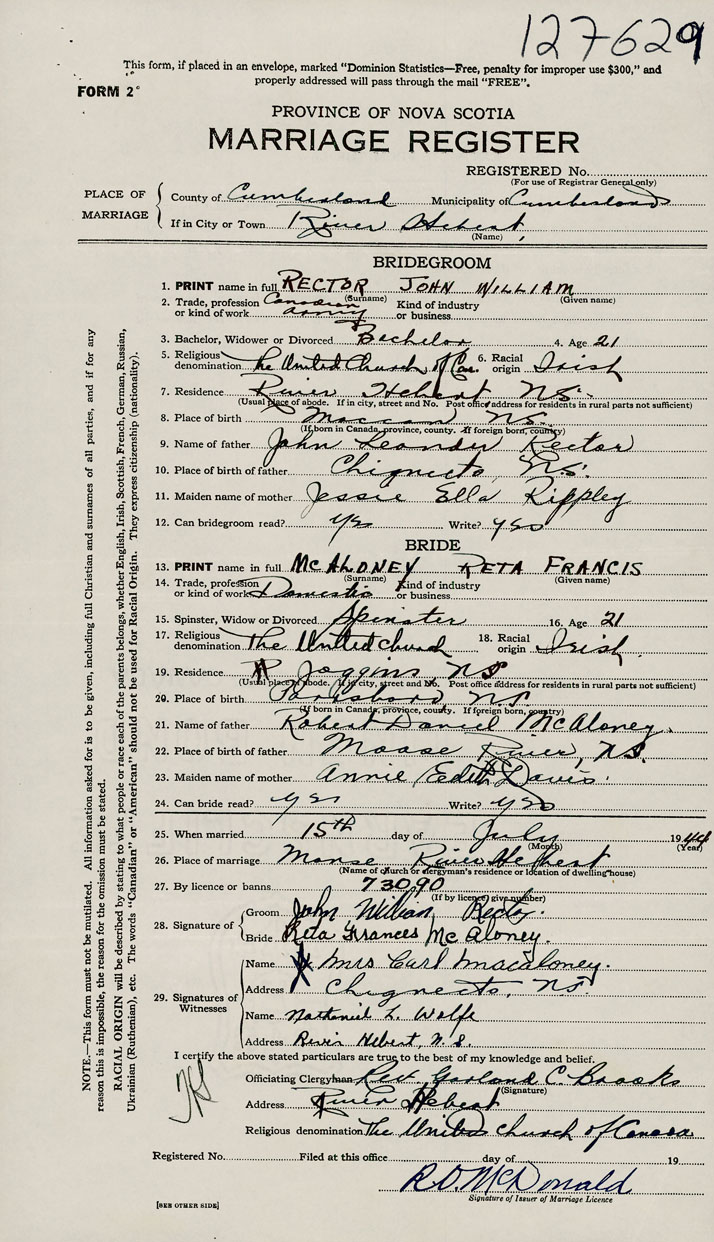 127629
This form, if placed in an envelope, marked "Dominion Statistics—Free, penalty for improper use $300," and
properly addressed will pass through the mail "FREE".
FORM 2
PROVINCE OF NOVA SCOTIA
MARRIAGE REGISTER
REGISTERED No.
(For use of Registrar General only)
PLACE OF MARRIAGE
County of Cumberland Municipality of Cumberland
If in City or Town River Hebert
(Name)
BRIDEGROOM
1. PRINT name in full RECTOR JOHN WILLIAM
(Surname) (Given name)
2. Trade, profession or kind of work Canadian army Kind of industry or business
3. Bachelor, Widower or Divorced Bachelor 4. Age 21
5. Religious denomination The United Church of Can. 6. Racial origin Irish
7. Residence River Hebert N.S.
(Usual place of abode. If in city, street and No. Post office address for residents in rural parts not sufficient)
8. Place of birth Maccan N.S.
(If born in Canada, province, county. If foreign born, country)
9. Name of father John Leander Rector
10. Place of birth of father Chignecto, N.S.
11. Maiden name of mother Jessie Ella Rippley
12. Can bridegroom read? yes Write? yes
BRIDE
13. PRINT name in full McALONEY RETA FRANCIS
(Surname) (Given name)
14. Trade, profession or kind of work Domestic Kind of industry or business
15. Spinster, Widow or Divorced Spinster 16. Age 21
17. Religious denomination The United Church 18. Racial origin Irish
19. Residence Joggins N.S.
(Usual place of abode. If in city, street and No. Post office address for residents in rural parts not sufficient)
20. Place of birth Parrsboro N.S.
(If born in Canada, province, county. If foreign born, country)
21. Name of father Robert Daniel McAloney.
22. Place of birth of father Moose River, N.S.
23. Maiden name of mother Annie Eedith Davis
24. Can bride read? yes Write? yes
25. When married 15th day of July 1944
(Month) (Year)
26. Place of marriage Manse River Hebert
(Name of church or clergyman's residence or location of dwelling house)
27. By licence or banns 73090
(If by licence, give number)
28. Signature of
Groom John William Rector.
Bride Reta Frances McAloney.
29. Signatures of Witnesses
Name Mrs Carl Macaloney.
Address Chignecto, N.S.
Name Nathaniel L. Wolfe
Address River Hebert, N.S.
I certify the above stated particulars are true to the best of my knowledge and belief.
Officiating Clergyman Rev. Garland C. Brooks
(Signature)
Address River Hebert
Religious denomination The United Church of Canada
Registered No. Filed at this office day of 19
R.D. McDonald
Signature of Issuer of Marriage Licence
[SEE OTHER SIDE]
NOTE.—This form must not be mutilated. All information asked for is to be given, including full Christian and surnames of all parties, and if for any
reason this is impossible, the reason for the omission must be stated.
RACIAL ORIGIN will be described by stating to what people or race each of the parents belongs, whether English, Irish, Scottish, French, German, Russian,
Ukrainian (Ruthenian), etc. The words "Canadian" or "American" should not be used for Racial Origin. They express citizenship (nationality).